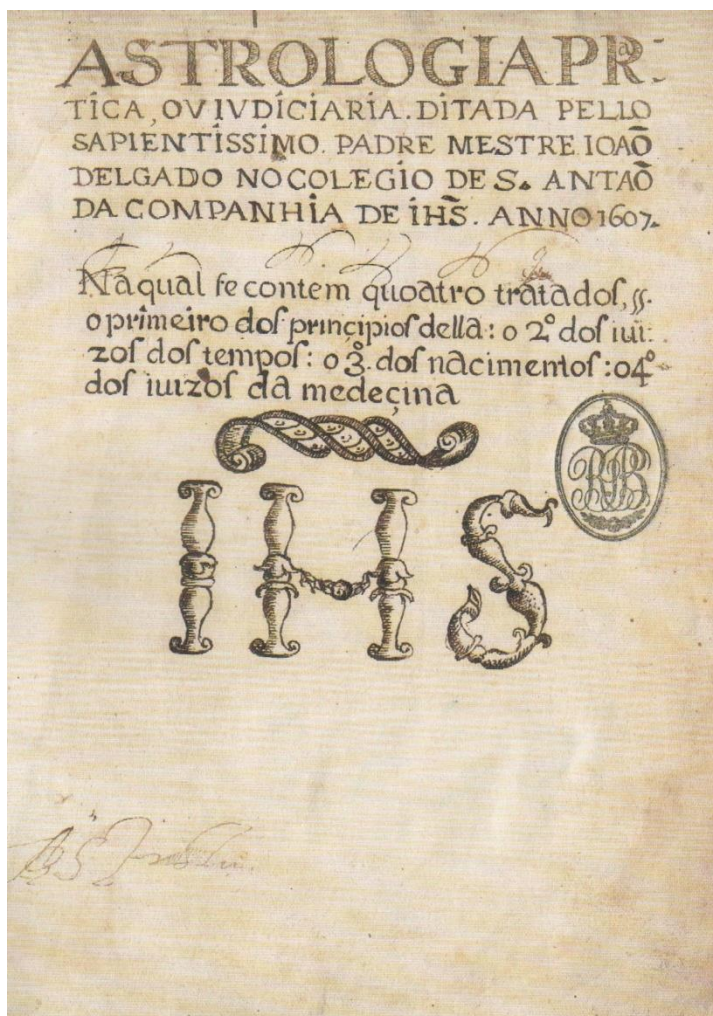 ASTROLOGIA PRᵃ:
TICA, OV IVDICIARIA. DITADA PELLO
SAPIENTISSIMO. PADRE MESTRE IOAÕ
DELGADO NO COLEGIO DE S. ANTAÕ
DA COMPANHIA DE IHS̃. ANNO 1607.
Na qual se contem quoatro tratados, ss.
o primeiro dos prinçipios della: o 2º dos iui:
zos dos tempos: o 3º. dos nacimentos: o 4º
dos iuizos da medeçina
IHS